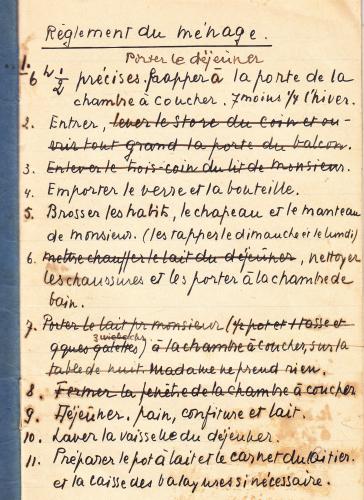 Règlement du ménage.
Porter le déjeuner
1. 6 h ½ précises. frapper à la porte de la
chambre à coucher. 7 moins ¼ l'hiver.
2. Entrer, lever le store du coin et ou-
vrir tout grand la porte du balcon.
3. Enlever le trois-coin du lit de monsieur.
4. Emporter le verre et la bouteille.
5. Brosser les habits, le chapeau et le manteau
de monsieur. (les tapper le dimanche et le lundi)
6. mettre chauffer le lait du déjeuner, nettoyer
les chaussures et les porter à la chambre de
bain.
7. Porter le lait pr monsieur (1 pot et 1 tasse et
3
qques galettes) à la chambre à coucher, sur la
table de nuit. Madame ne prend rien.
8. Fermer la fenêtre de la chambre à coucher
9. Déjeuner. pain, confiture et lait.
10. Laver la vaisselle du déjeuner.
11. Préparer le pot à lait et le carnet du laitier.
et la caisse des balayures si nécessaire.